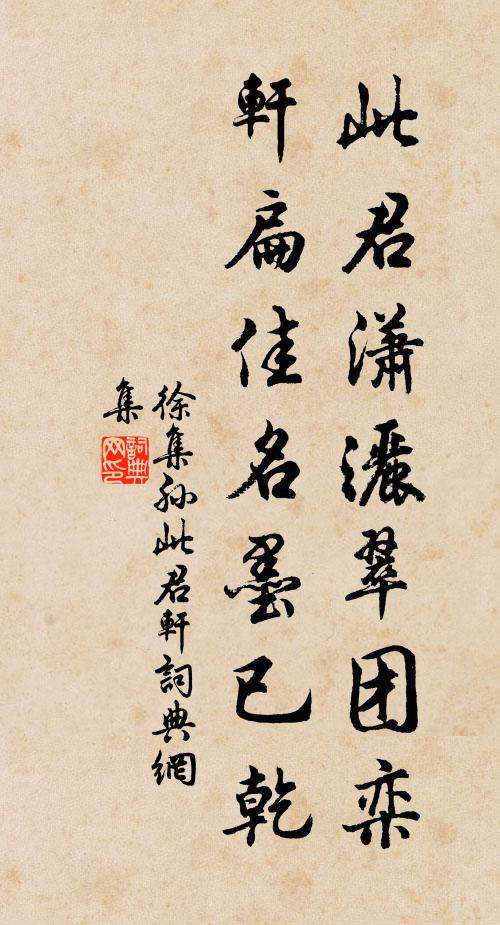 此君瀟灑翠团栾
軒扁佳名墨已乾
徐集孙此君軒詞典網
集
詞典
网印